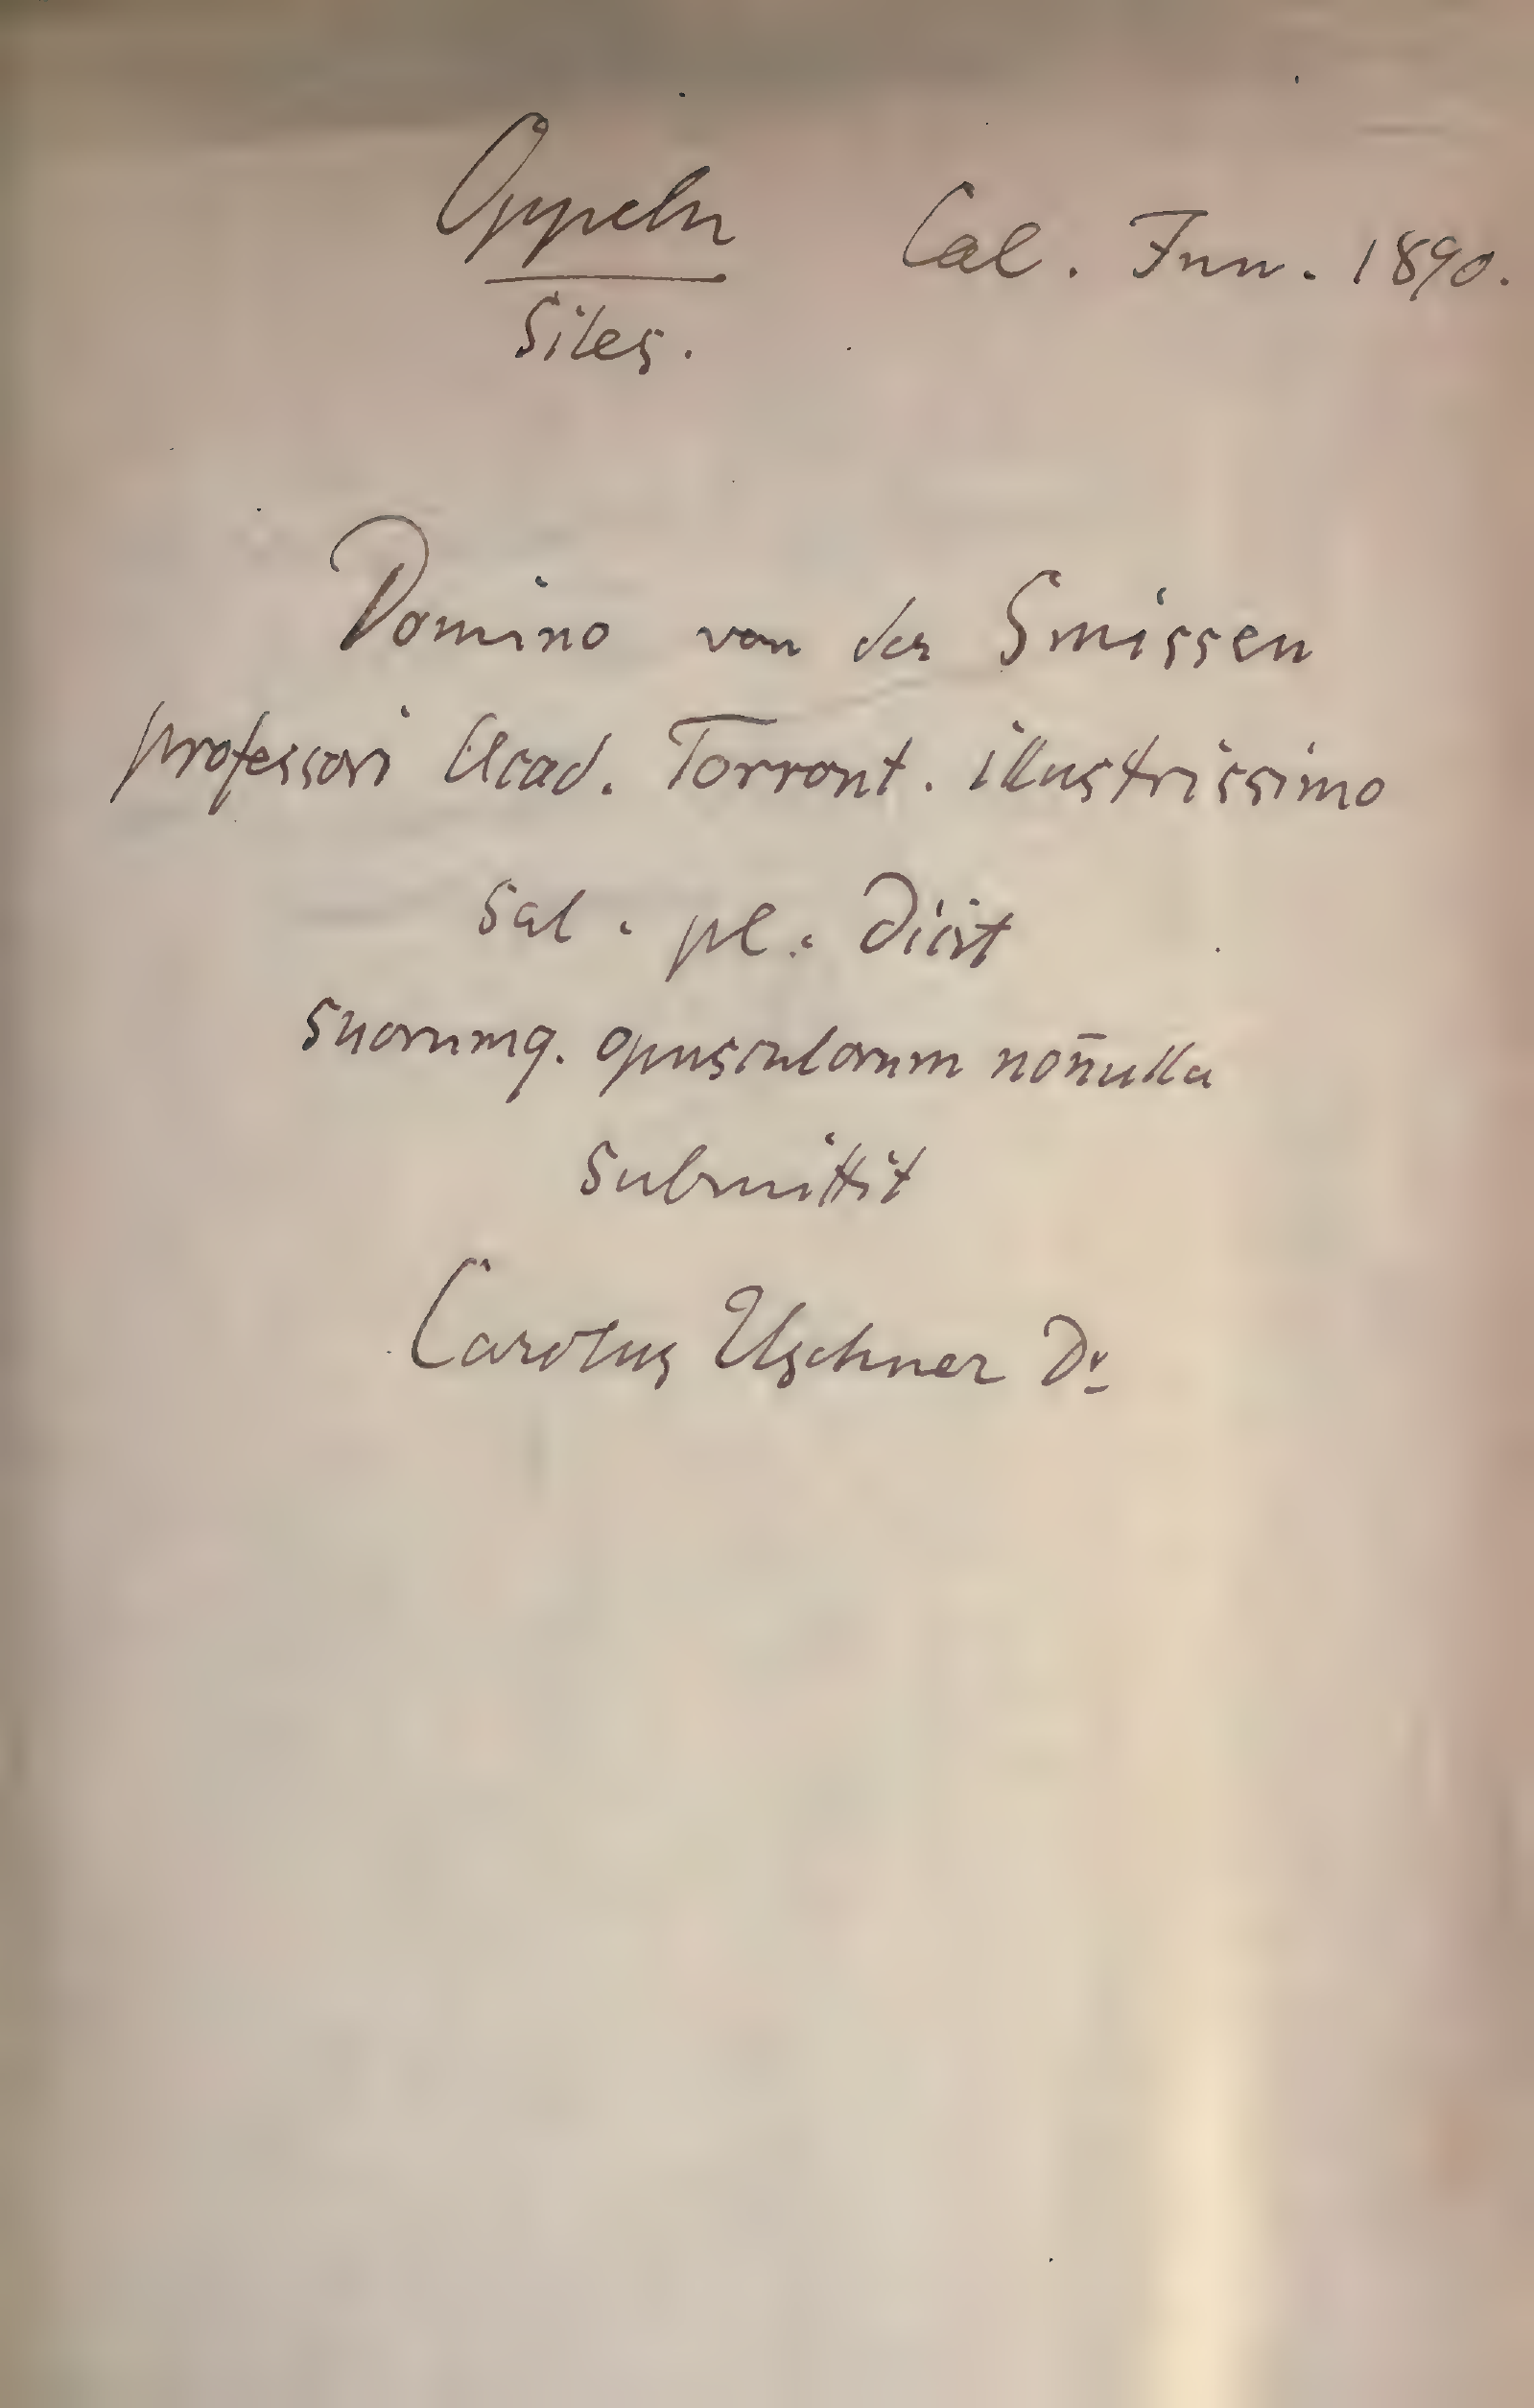 Oppeln Cal. Jun. 1890.
Siles.
Domino von der Smissen
professori Acad. Torront. illustrissimo
sal. pl. dicit
suorumq. opusculorum non̄ulla
submittit
Carolus Uschner Dr